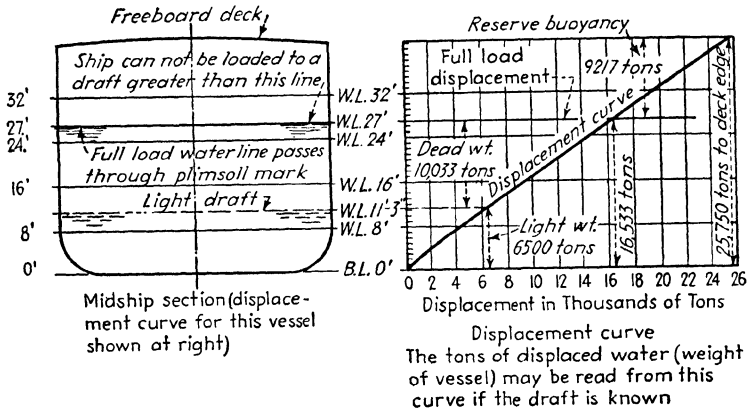 Freeboard deck
Ship can not be loaded to a
draft greater than this line
32'
W.L. 32'
27'
W.L. 27'
24'
W.L. 24'
Full load waterline passes
through plimsoll mark
16'
W.L. 16'
Light draft
W.L. 11'-3"
8'
W.L. 8'
0'
B.L. 0'
Midship section (displace-
ment curve for this vessel
shown at right)
Reserve buoyancy
9217 tons
Full load
displacement
Displacement curve
Dead wt.
10,033 tons
Light wt.
6500 tons
16,533 tons
25,750 tons to deck edge
0 2 4 6 8 10 12 14 16 18 20 22 24 26
Displacement in Thousands of Tons
Displacement curve
The tons of displaced water (weight
of vessel) may be read from this
curve if the draft is known